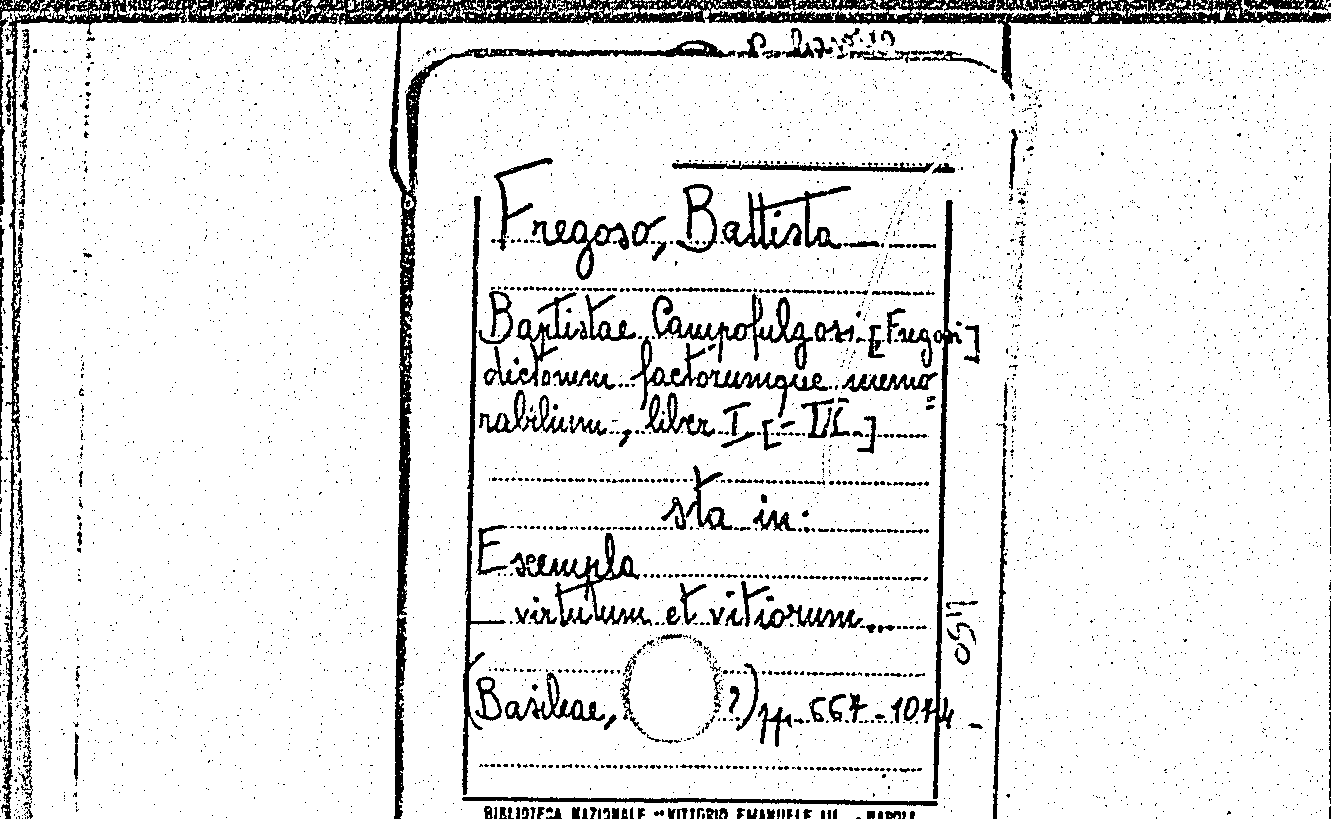 Fregoso, Battista
Baptistae Campofulgosi [Fregosi]
dictorum factorumque memo=
rabilium, liber I [- IX]
sta in:
Exempla
virtutum et vitiorum...
(Basileae, ?) pp. 667-1074-
1150
BIBLIOTECA NAZIONALE "VITTORIO EMANUELE III" - NAPOLI